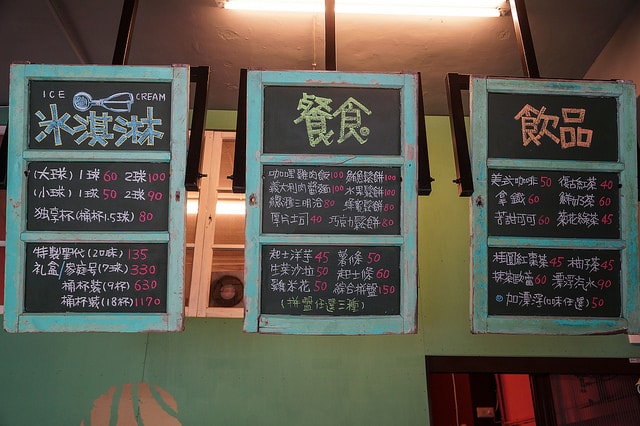 ICE CREAM
冰淇淋
(大球) 1球 60 2球 100
(小球) 1球 50 2球 90
獨享杯(桶杯1.5球) 80
特製聖代(20味) 135
礼盒/家庭号(7球) 330
桶杯裝(9杯) 630
桶杯裝(18杯) 1170
餐食
咖哩雞肉飯 100 鮪魚鬆餅 100
義大利肉醬麵 100 水果鬆餅 100
三明治 60 蜂蜜鬆餅 80
厚片土司 40 巧克力鬆餅 80
起士洋芋 45 薯條 50
生菜沙拉 50 起士條 60
雞米花 50 綜合拼盤 150
(拼盤任選三種)
飲品
美式咖啡 50 復古紅茶 40
拿鐵 60 鮮奶茶 60
苦甜可可 60 菊花綠茶 45
桂圓紅棗茶 45 柚子茶 45
抹茶歐蕾 60 漂浮汽水 90
加漂浮(口味任選) 50